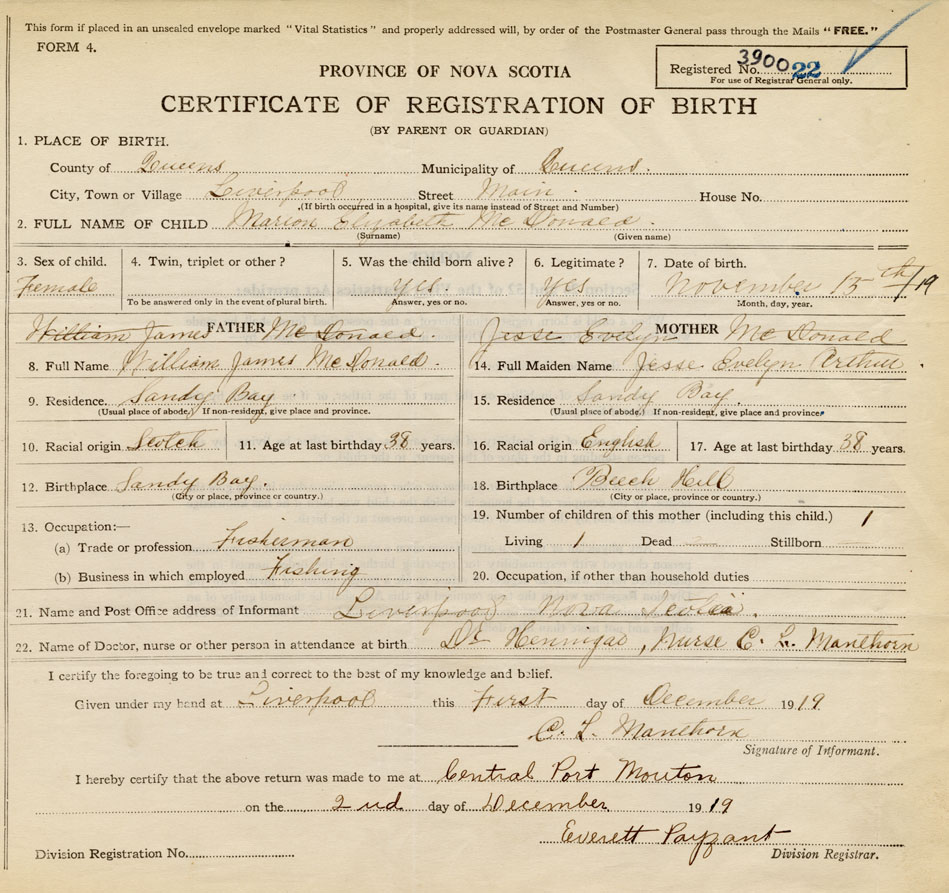 This form if placed in an unsealed envelope marked "Vital Statistics" and properly addressed will, by order of the Postmaster General pass through the Mails "FREE."
FORM 4.
Registered No. 3900 22
For use of Registrar General only.
PROVINCE OF NOVA SCOTIA
CERTIFICATE OF REGISTRATION OF BIRTH
(BY PARENT OR GUARDIAN)
1. PLACE OF BIRTH.
County of Queens Municipality of Queens.
City, Town or Village Liverpool Street Main. House No.
(If birth occurred in a hospital, give its name instead of Street and Number)
2. FULL NAME OF CHILD Marion Elizabeth McDonald.
(Surname) (Given name)
3. Sex of child. 4. Twin, triplet or other? 5. Was the child born alive? 6. Legitimate? 7. Date of birth.
Female Yes Yes November 15th/19
To be answered only in the event of plural birth. Answer, yes or no. Answer, yes or no. Month, day, year.
William James FATHER McDonald. Jesse Evelyn MOTHER McDonald
8. Full Name William James McDonald. 14. Full Maiden Name Jesse Evelyn Arthur
9. Residence. Sandy Bay 15. Residence Sandy Bay.
(Usual place of abode.) If non-resident, give place and province. (Usual place of abode.) If non-resident, give place and province.
10. Racial origin Scotch 11. Age at last birthday 38 years. 16. Racial origin English 17. Age at last birthday 38 years.
12. Birthplace Sandy Bay. 18. Birthplace Beech Hill
(City or place, province or country.) (City or place, province or country.)
13. Occupation:— 19. Number of children of this mother (including this child.) 1
(a) Trade or profession Fisherman Living 1 Dead Stillborn
(b) Business in which employed Fishing 20. Occupation, if other than household duties
21. Name and Post Office address of Informant Liverpool Nova Scotia.
22. Name of Doctor, nurse or other person in attendance at birth Dr Hennigar, Nurse C. L. Manthorn
I certify the foregoing to be true and correct to the best of my knowledge and belief.
Given under my hand at Liverpool this First day of December 1919
C. L. Manthorn
Signature of Informant.
I hereby certify that the above return was made to me at Central Port Mouton
on the 2nd day of December 1919
Everett Payzant
Division Registration No. Division Registrar.